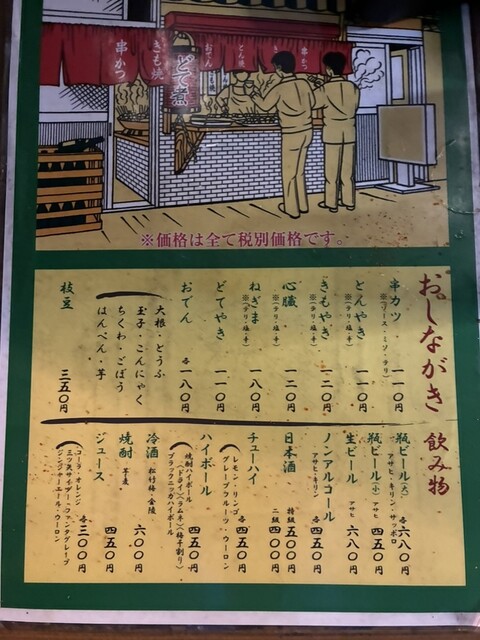 串かつ
きも焼
どて煮
おでん
とん焼
串かつ
※価格は全て税別価格です。
おしながき
串カツ 一一〇円
※(ソース・ミソ・テリ)
とんやき 一一〇円
※(テリ・塩・辛)
きもやき 一二〇円
※(テリ・塩・辛)
心臓 一二〇円
※(テリ・塩・辛)
ねぎま 一八〇円
※(テリ・塩・辛)
どてやき 一一〇円
おでん 各一八〇円
大根・とうふ
玉子・こんにゃく
ちくわ・ごぼう
はんぺん・芋
枝豆 三五〇円
飲み物
瓶ビール(大) 各六八〇円
アサヒ・キリン・サッポロ
瓶ビール(小) アサヒ 四五〇円
生ビール アサヒ 六八〇円
ノンアルコール 各四五〇円
アサヒ・キリン
日本酒 特級 五〇〇円
二級 四〇〇円
チューハイ 各四五〇円
レモン・リンゴ
グレープフルーツ・ウーロン
ハイボール 各四五〇円
焼酎ハイボール
(ドライ)(ラムネ)(梅子割り)
ブラックニッカハイボール
冷酒 松竹梅・金陵 六〇〇円
焼酎 芋麦 四五〇円
ジュース 各三〇〇円
(コーラ・オレンジ
三ツ矢サイダー・ファンタグレープ
ジンジャーエール・ウーロン